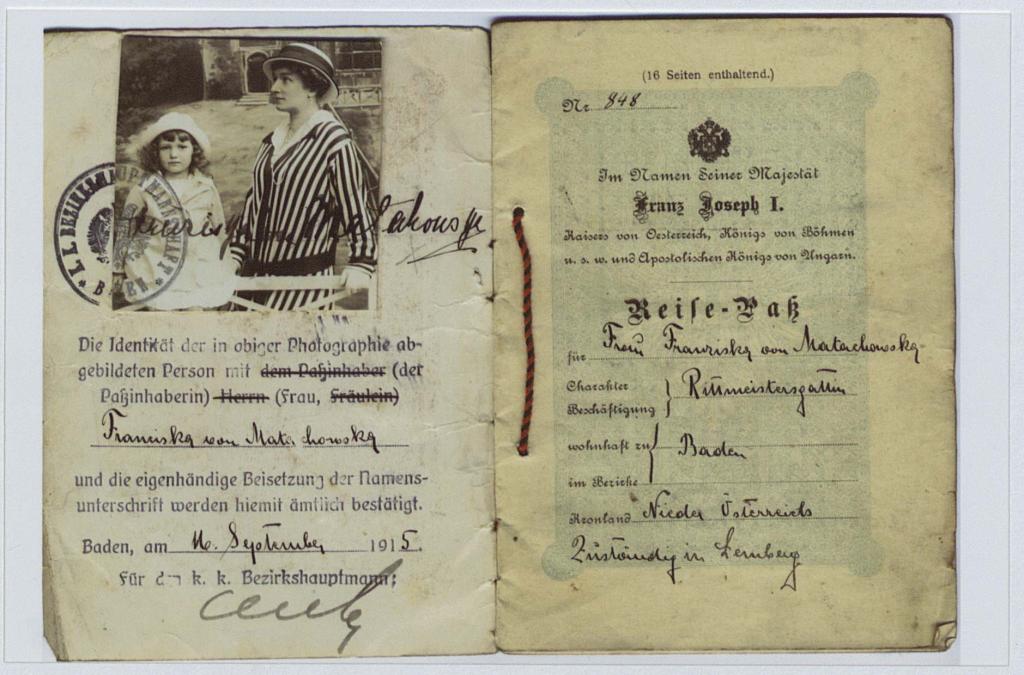 K. K. BEZIRKSHAUPTMANNSCHAFT
* BADEN *
Die Identität der in obiger Photographie ab-
gebildeten Person mit dem Paßinhaber (der
Paßinhaberin) Herrn (Frau, Fräulein)
Franciska von Matachowska
und die eigenhändige Beisetzung der Namens-
unterschrift werden hiemit ämtlich bestätigt.
Baden, am 16. September 1915.
Für den k. k. Bezirkshauptmann:
(16 Seiten enthaltend.)
Nr. 848
Im Namen Seiner Majestät
Franz Joseph I.
Kaisers von Oesterreich, Königs von Böhmen
u. s. w. und Apostolischen Königs von Ungarn.
Reise-Paß
für Frau Franziska von Matachowska
Charakter
Beschäftigung } Rittmeistersgattin
wohnhaft zu } Baden
im Bezirke
Kronland Nieder Österreich
Zuständig in Lemberg